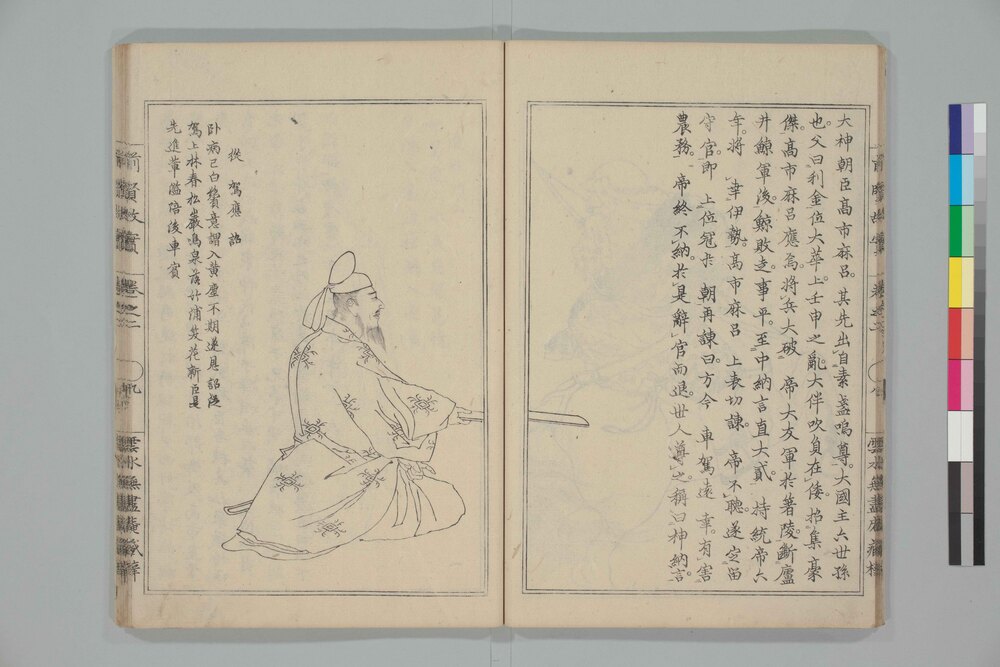 大神朝臣高市麻呂。其先出自素盞嗚尊。大國主六世孫
也。父曰利金位大華上。壬申之亂。大伴吹負在倭。招集豪
傑。高市麻呂應焉。將兵大破 帝大友軍於箸陵。斷廬
井鯨軍後。鯨敗走。事平。至中納言直大貳。 持統帝六
年。將 幸伊勢。高市麻呂 上表切諫。 帝不聽。遂定留
守官。即 上位冠於 朝再諫曰。方今 車駕遠 幸。有害
農務。 帝終不納。於是辭官而退。世人尊之。稱曰神納言。
從 駕應 詔
臥病已白鬢意謂入黃塵不期逐恩詔從
駕上林春松巖鳴泉落竹浦笑花新臣是
先進輩濫陪後車賓
前賢故實
卷之二
雲水無盡庵藏梓